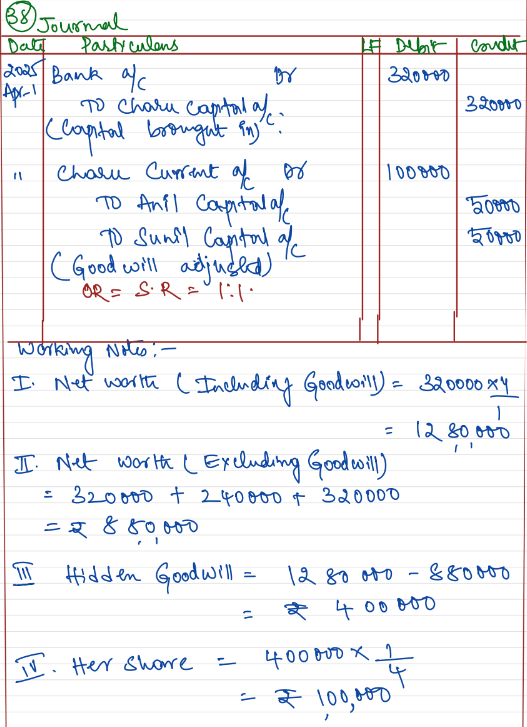 38 Journal
Date Particulars LF Debit Credit
2025 Bank a/c Dr 320000
Apr-1 To Charu Capital a/c 320000
(Capital brought in):
" Charu Current a/c Dr 100000
To Anil Capital a/c 50000
To Sunil Capital a/c 50000
(Goodwill adjusted)
OR = S.R = 1:1.
Working Notes:-
I. Net worth (Including Goodwill) = 320000 x 4/1
= 12,80,000
II. Net worth (Excluding Goodwill)
= 320000 + 240000 + 320000
= ₹ 8,80,000
III Hidden Goodwill = 1280000 - 880000
= ₹ 400000
IV. Her share = 400000 x 1/4
= ₹ 100,000